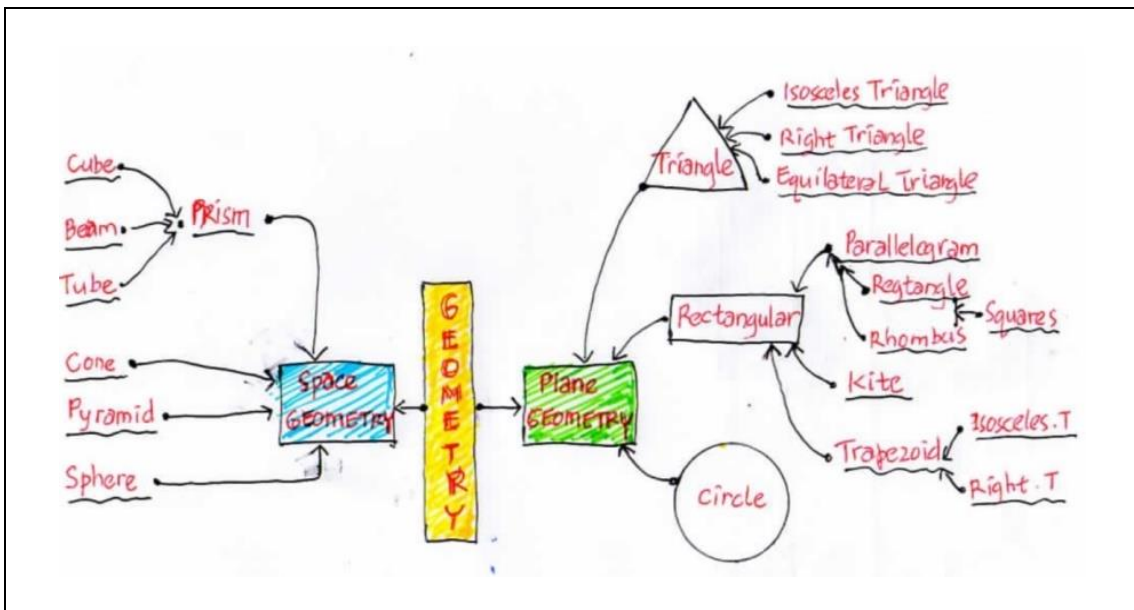 Cube
Beam
Tube
PRism
Cone
Pyramid
Sphere
Space
GEOMETRY
GEOMETRY
Plane
GEOMETRY
Triangle
Isosceles Triangle
Right Triangle
Equilateral Triangle
Rectangular
Parallelogram
Regtangle
Rhombus
Squares
Kite
Trapezoid
Isosceles.T
Right.T
Circle